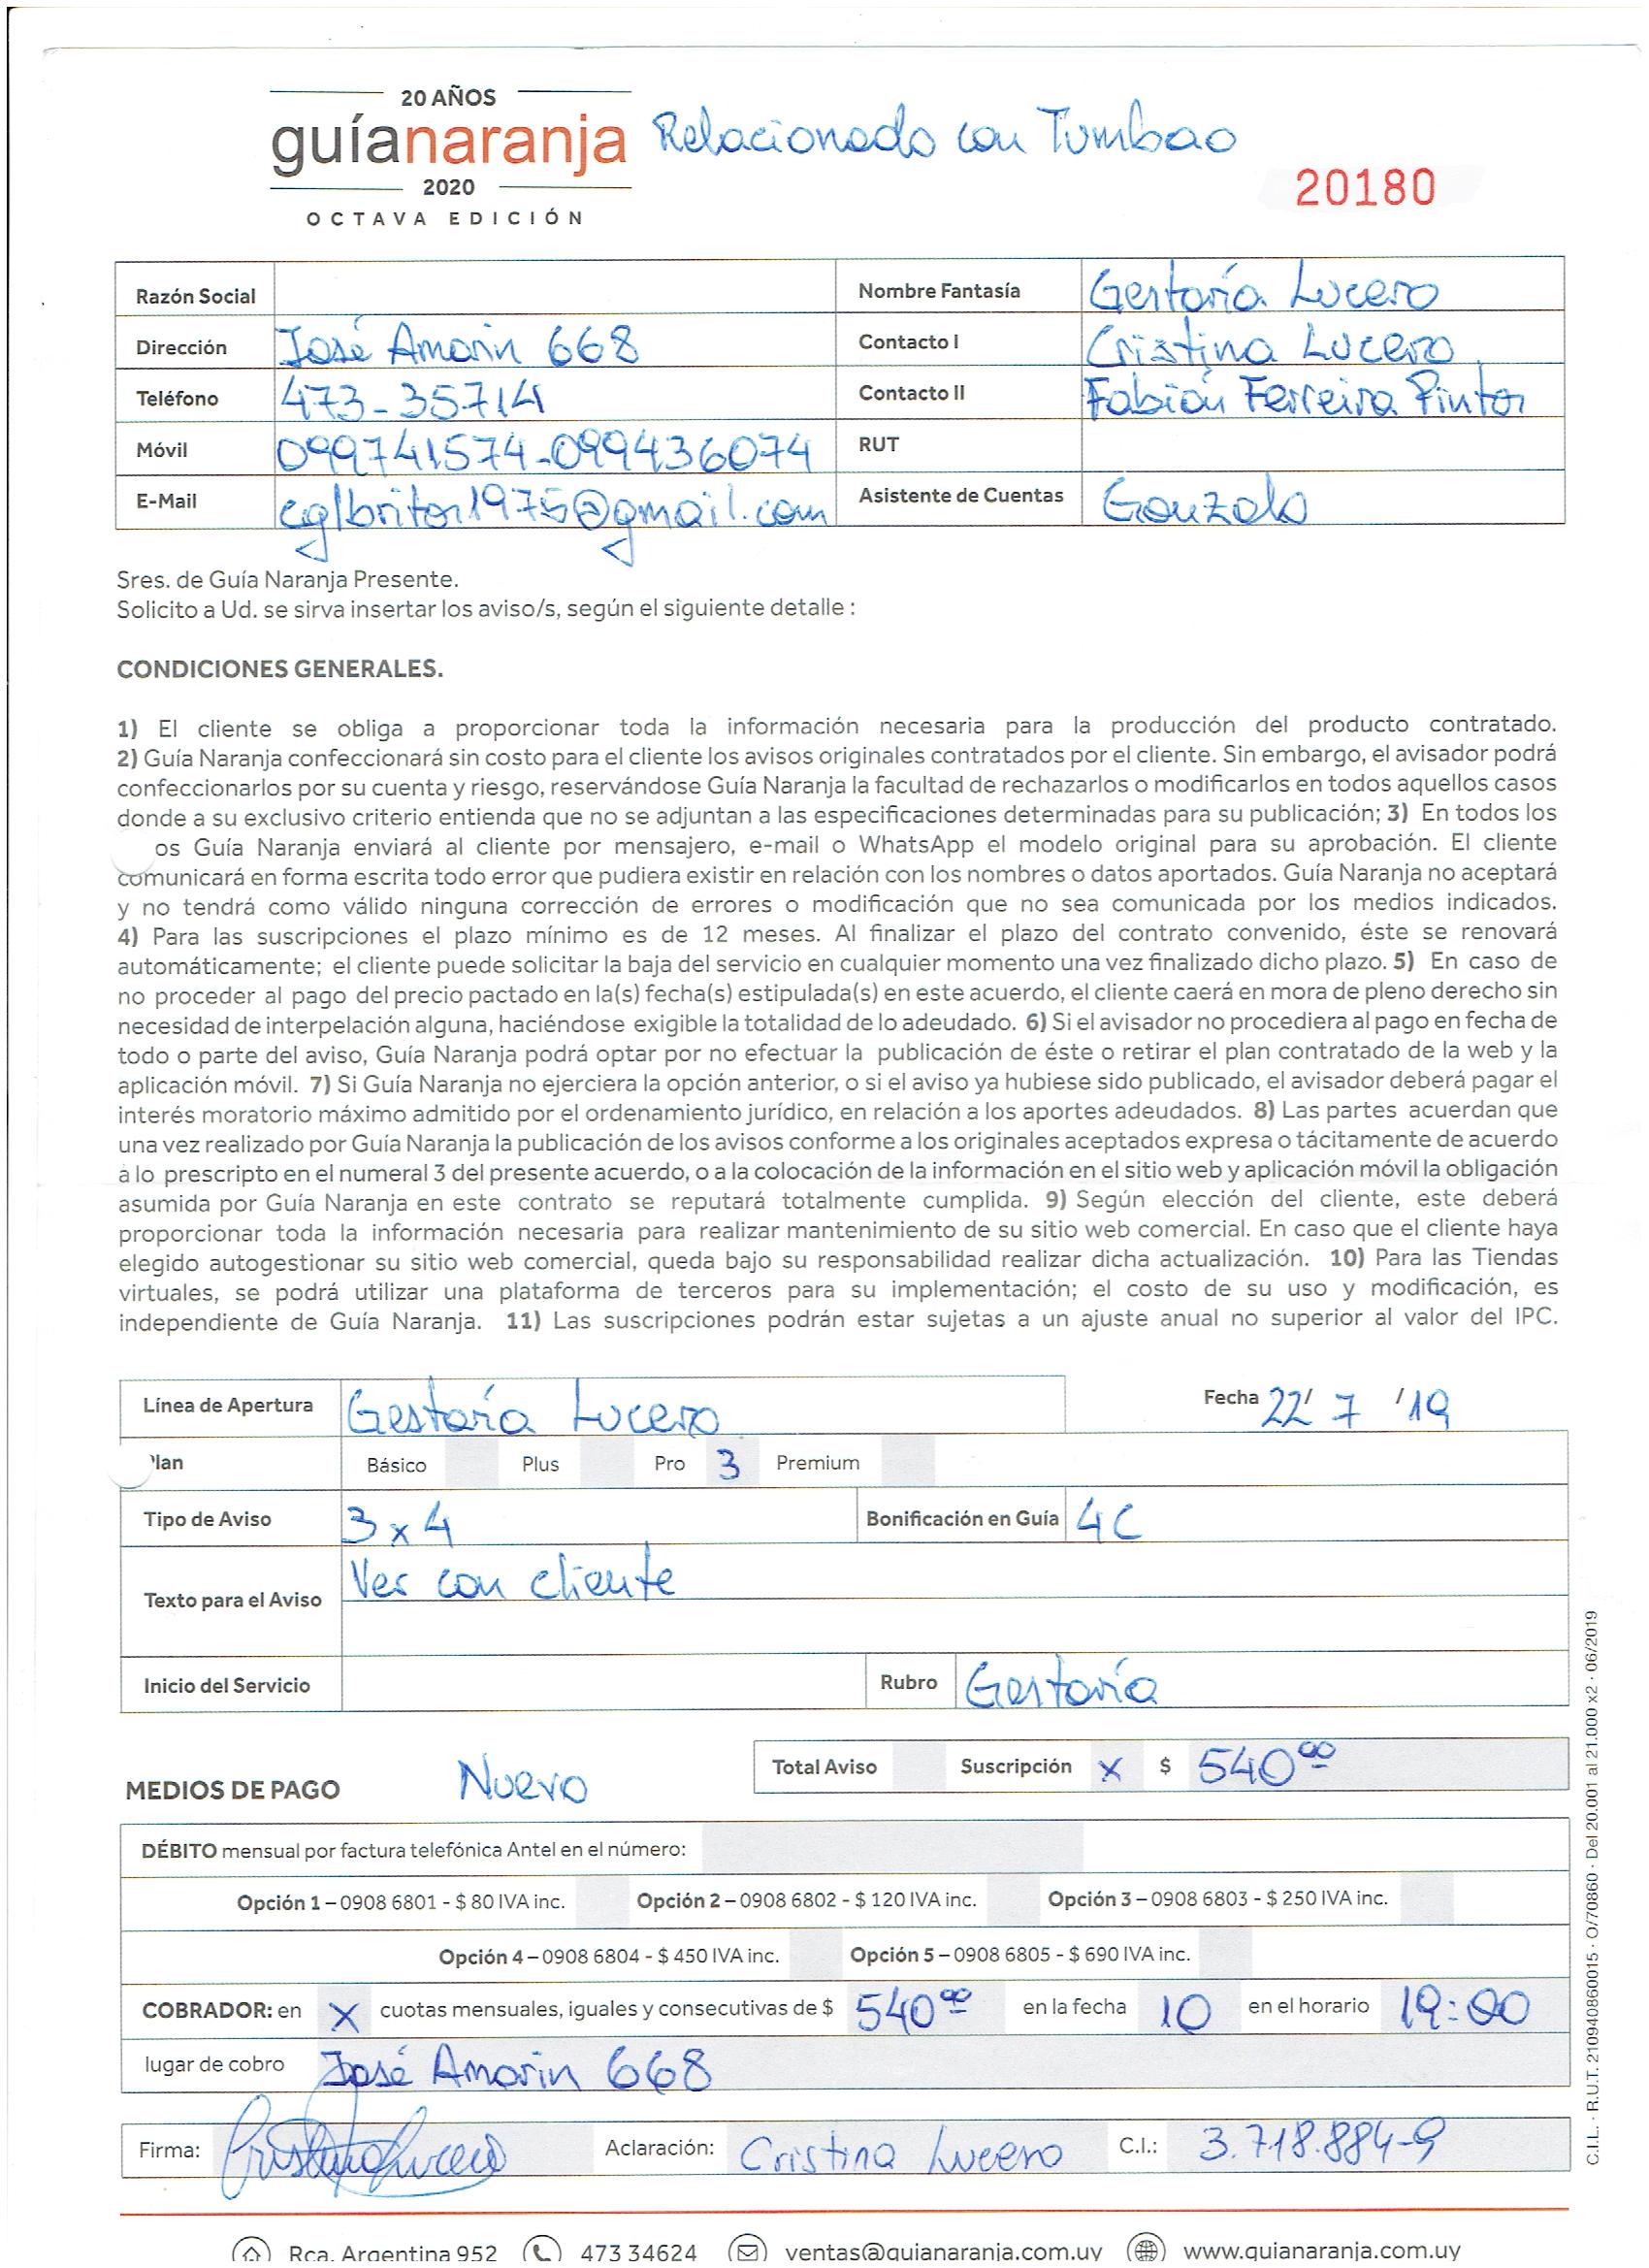 20 AÑOS
guíanaranja
2020
OCTAVA EDICIÓN
Relacionado con Tumbao
20180
Razón Social
Nombre Fantasía Gestoría Lucero
Dirección José Amorin 668
Contacto I Cristina Lucero
Teléfono 473-35714
Contacto II Fabián Ferreira Pintos
Móvil 099741574-099436074
RUT
E-Mail cglbritos1975@gmail.com
Asistente de Cuentas Gonzalo
Sres. de Guía Naranja Presente.
Solicito a Ud. se sirva insertar los aviso/s, según el siguiente detalle :
CONDICIONES GENERALES.
1) El cliente se obliga a proporcionar toda la información necesaria para la producción del producto contratado.
2) Guía Naranja confeccionará sin costo para el cliente los avisos originales contratados por el cliente. Sin embargo, el avisador podrá
confeccionarlos por su cuenta y riesgo, reservándose Guía Naranja la facultad de rechazarlos o modificarlos en todos aquellos casos
donde a su exclusivo criterio entienda que no se adjuntan a las especificaciones determinadas para su publicación; 3) En todos los
os Guía Naranja enviará al cliente por mensajero, e-mail o WhatsApp el modelo original para su aprobación. El cliente
comunicará en forma escrita todo error que pudiera existir en relación con los nombres o datos aportados. Guía Naranja no aceptará
y no tendrá como válido ninguna corrección de errores o modificación que no sea comunicada por los medios indicados.
4) Para las suscripciones el plazo mínimo es de 12 meses. Al finalizar el plazo del contrato convenido, éste se renovará
automáticamente; el cliente puede solicitar la baja del servicio en cualquier momento una vez finalizado dicho plazo. 5) En caso de
no proceder al pago del precio pactado en la(s) fecha(s) estipulada(s) en este acuerdo, el cliente caerá en mora de pleno derecho sin
necesidad de interpelación alguna, haciéndose exigible la totalidad de lo adeudado. 6) Si el avisador no procediera al pago en fecha de
todo o parte del aviso, Guía Naranja podrá optar por no efectuar la publicación de éste o retirar el plan contratado de la web y la
aplicación móvil. 7) Si Guía Naranja no ejerciera la opción anterior, o si el aviso ya hubiese sido publicado, el avisador deberá pagar el
interés moratorio máximo admitido por el ordenamiento jurídico, en relación a los aportes adeudados. 8) Las partes acuerdan que
una vez realizado por Guía Naranja la publicación de los avisos conforme a los originales aceptados expresa o tácitamente de acuerdo
a lo prescripto en el numeral 3 del presente acuerdo, o a la colocación de la información en el sitio web y aplicación móvil la obligación
asumida por Guía Naranja en este contrato se reputará totalmente cumplida. 9) Según elección del cliente, este deberá
proporcionar toda la información necesaria para realizar mantenimiento de su sitio web comercial. En caso que el cliente haya
elegido autogestionar su sitio web comercial, queda bajo su responsabilidad realizar dicha actualización. 10) Para las Tiendas
virtuales, se podrá utilizar una plataforma de terceros para su implementación; el costo de su uso y modificación, es
independiente de Guía Naranja. 11) Las suscripciones podrán estar sujetas a un ajuste anual no superior al valor del IPC.
Línea de Apertura Gestoría Lucero
Fecha 22/ 7 /19
lan Básico Plus Pro 3 Premium
Tipo de Aviso 3 x 4 Bonificación en Guía 4C
Texto para el Aviso Ver con cliente
Inicio del Servicio Rubro Gestoría
MEDIOS DE PAGO Nuevo
Total Aviso Suscripción x $ 540⁰⁰
DÉBITO mensual por factura telefónica Antel en el número:
Opción 1 – 0908 6801 - $ 80 IVA inc. Opción 2 – 0908 6802 - $ 120 IVA inc. Opción 3 – 0908 6803 - $ 250 IVA inc.
Opción 4 – 0908 6804 - $ 450 IVA inc. Opción 5 – 0908 6805 - $ 690 IVA inc.
COBRADOR: en X cuotas mensuales, iguales y consecutivas de $ 540⁰⁰ en la fecha 10 en el horario 19:00
lugar de cobro José Amorin 668
Firma: Cristina Lucero Aclaración: Cristina Lucero C.I.: 3.718.884-9
Rca. Argentina 952 473 34624 ventas@guianaranja.com.uy www.guianaranja.com.uy
C.I.L. · R.U.T. 210940860015 · O/70860 · Del 20.001 al 21.000 x2 · 06/2019